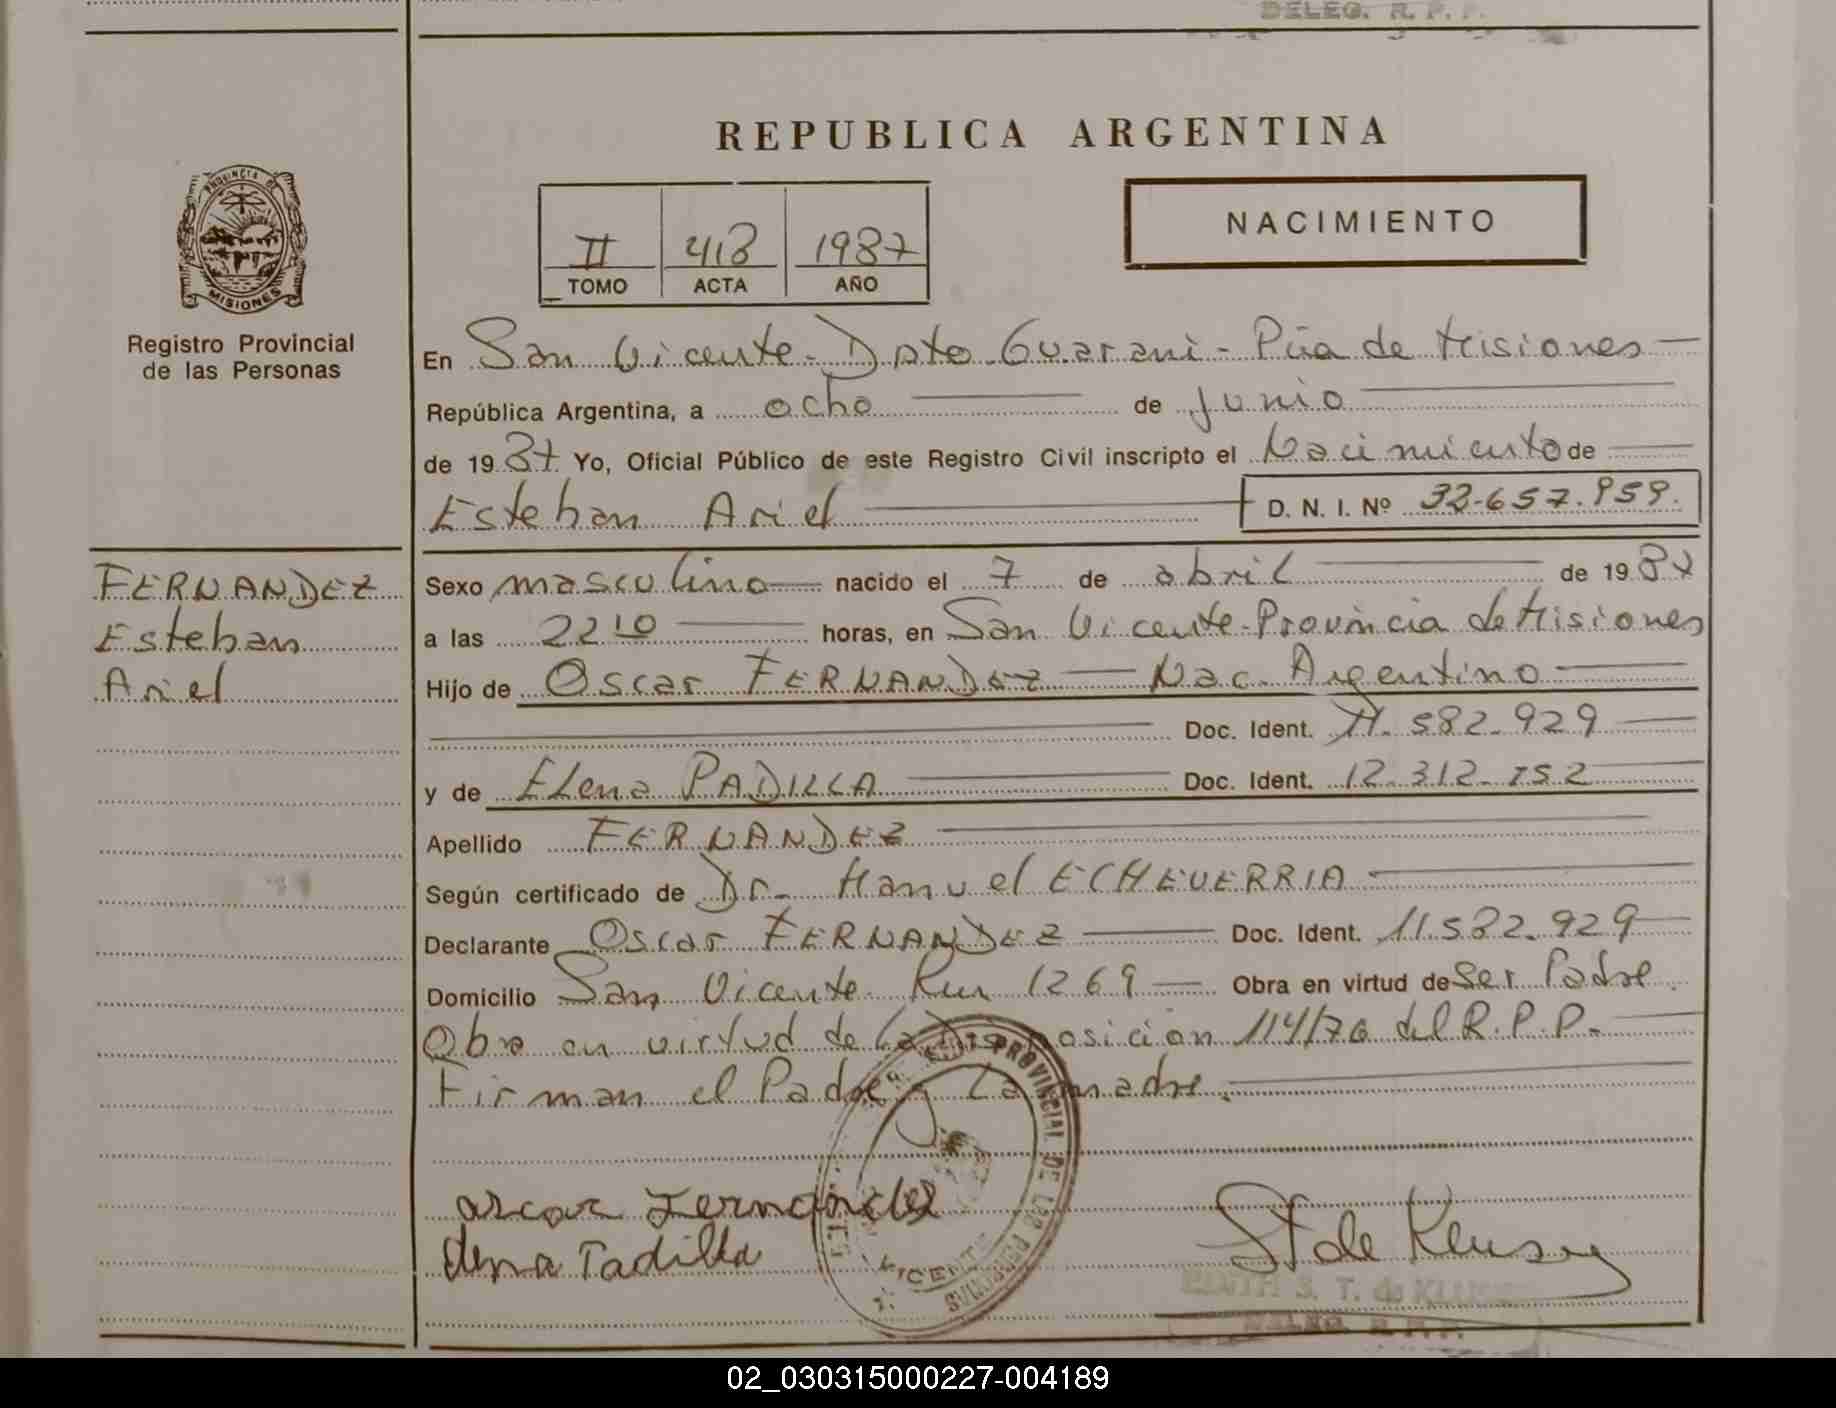 DELEG. R. P. P.
REPUBLICA ARGENTINA
PROVINCIA DE
MISIONES
Registro Provincial
de las Personas
II 418 1987
TOMO ACTA AÑO
NACIMIENTO
En San Vicente - Dpto Guarani - Pcia de Misiones
República Argentina, a ocho de junio
de 1987 Yo, Oficial Público de este Registro Civil inscripto el Nacimiento de
Esteban Ariel D. N. I. Nº 32.657.959.
FERNANDEZ
Esteban
Ariel
Sexo masculino nacido el 7 de abril de 1987
a las 22 10 horas, en San Vicente - Provincia de Misiones
Hijo de Oscar FERNANDEZ Nac. Argentino
Doc. Ident. 11.582.929
y de Elena PADILLA Doc. Ident. 12.312.152
Apellido FERNANDEZ
Según certificado de Dr. Manuel ECHEVERRIA
Declarante Oscar FERNANDEZ Doc. Ident. 11.582.929
Domicilio San Vicente Km 1269 Obra en virtud de Ser Padre.
Obra en virtud de la Disposición 114/76 del R.P.P.
Firman el Padre y La madre.
PROVINCIAL DE LAS PERSONAS
VICENTE
oscar Fernandez
Elena Padilla
EDITH S. T. de
DELEG. R.P.P.
02_030315000227-004189